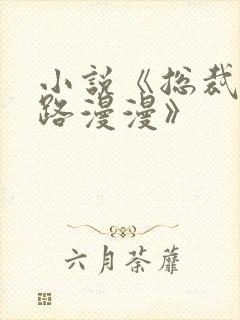 小说《总裁
路漫漫》
六月荼蘼